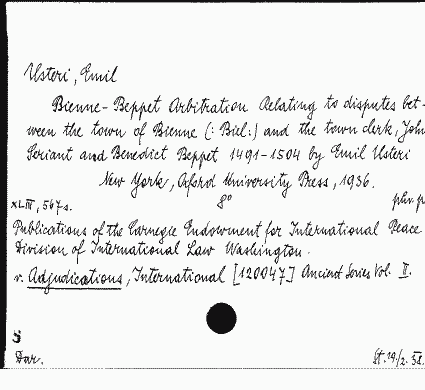 Usteri, Emil
Bienne-Beppet Arbitration Relating to disputes bet-
ween the town of Bienne (: Biel:) and the town clerk, John
Seriant and Benedict Beppet 1491-1504 by Emil Usteri
New York, Oxford University Press, 1936.
XLIII, 567 s. 8° phv. p
Publications of the Carnegie Endowment for International Peace
Division of International Law Washington.
v. Adjudications, International [120047] Ancient Series Vol. II.
S
Dar. St. 19/2. 38.